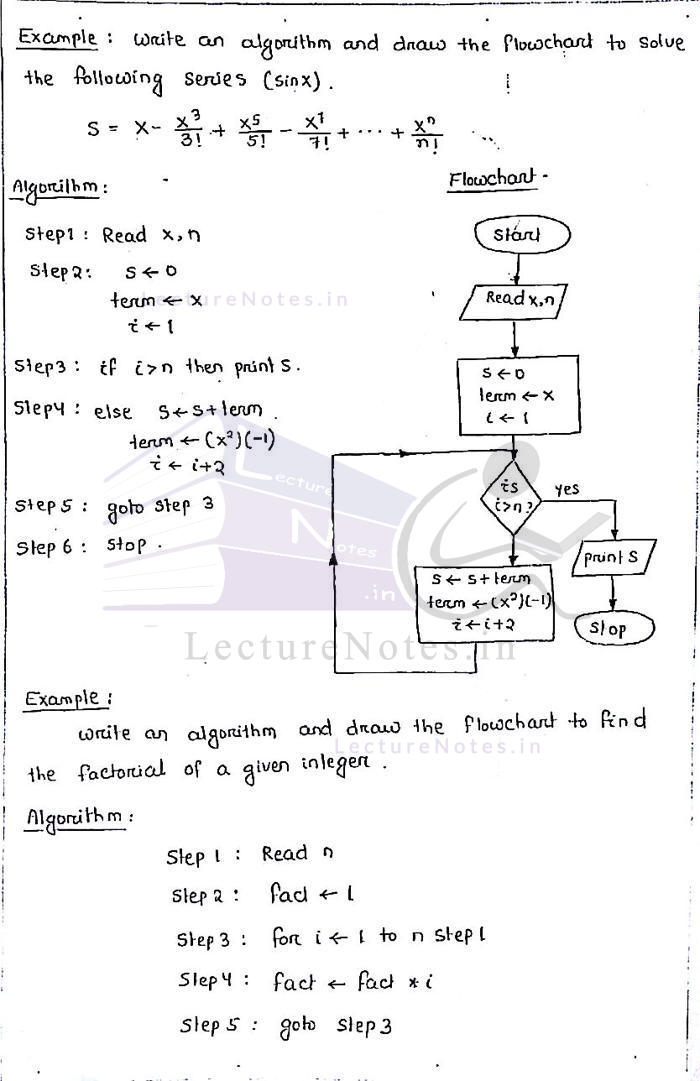 Example : Write an algorithm and draw the flowchart to solve
the following series (sinx).
S = x - x³/3! + x⁵/5! - x⁷/7! + ... + xⁿ/n!
Algorithm :
Step1 : Read x,n
Step2 : S ← 0
term ← x
i ← 1
Step3 : if i>n then print S.
Step4 : else S ← S + term.
term ← (x²)(-1)
i ← i+2
Step5 : goto step 3
Step 6 : Stop.
Flowchart -
Start
Read x,n
S ← 0
term ← x
i ← 1
is
i>n?
yes
print S
Stop
S ← S + term
term ← (x²)(-1)
i ← i+2
LectureNotes.in
Lecture
Notes
.in
LectureNotes.in
Example :
write an algorithm and draw the flowchart to find
LectureNotes.in
the factorial of a given integer.
Algorithm :
Step 1 : Read n
Step 2 : fact ← 1
Step 3 : for i ← 1 to n step 1
Step 4 : fact ← fact * i
Step 5 : goto step 3